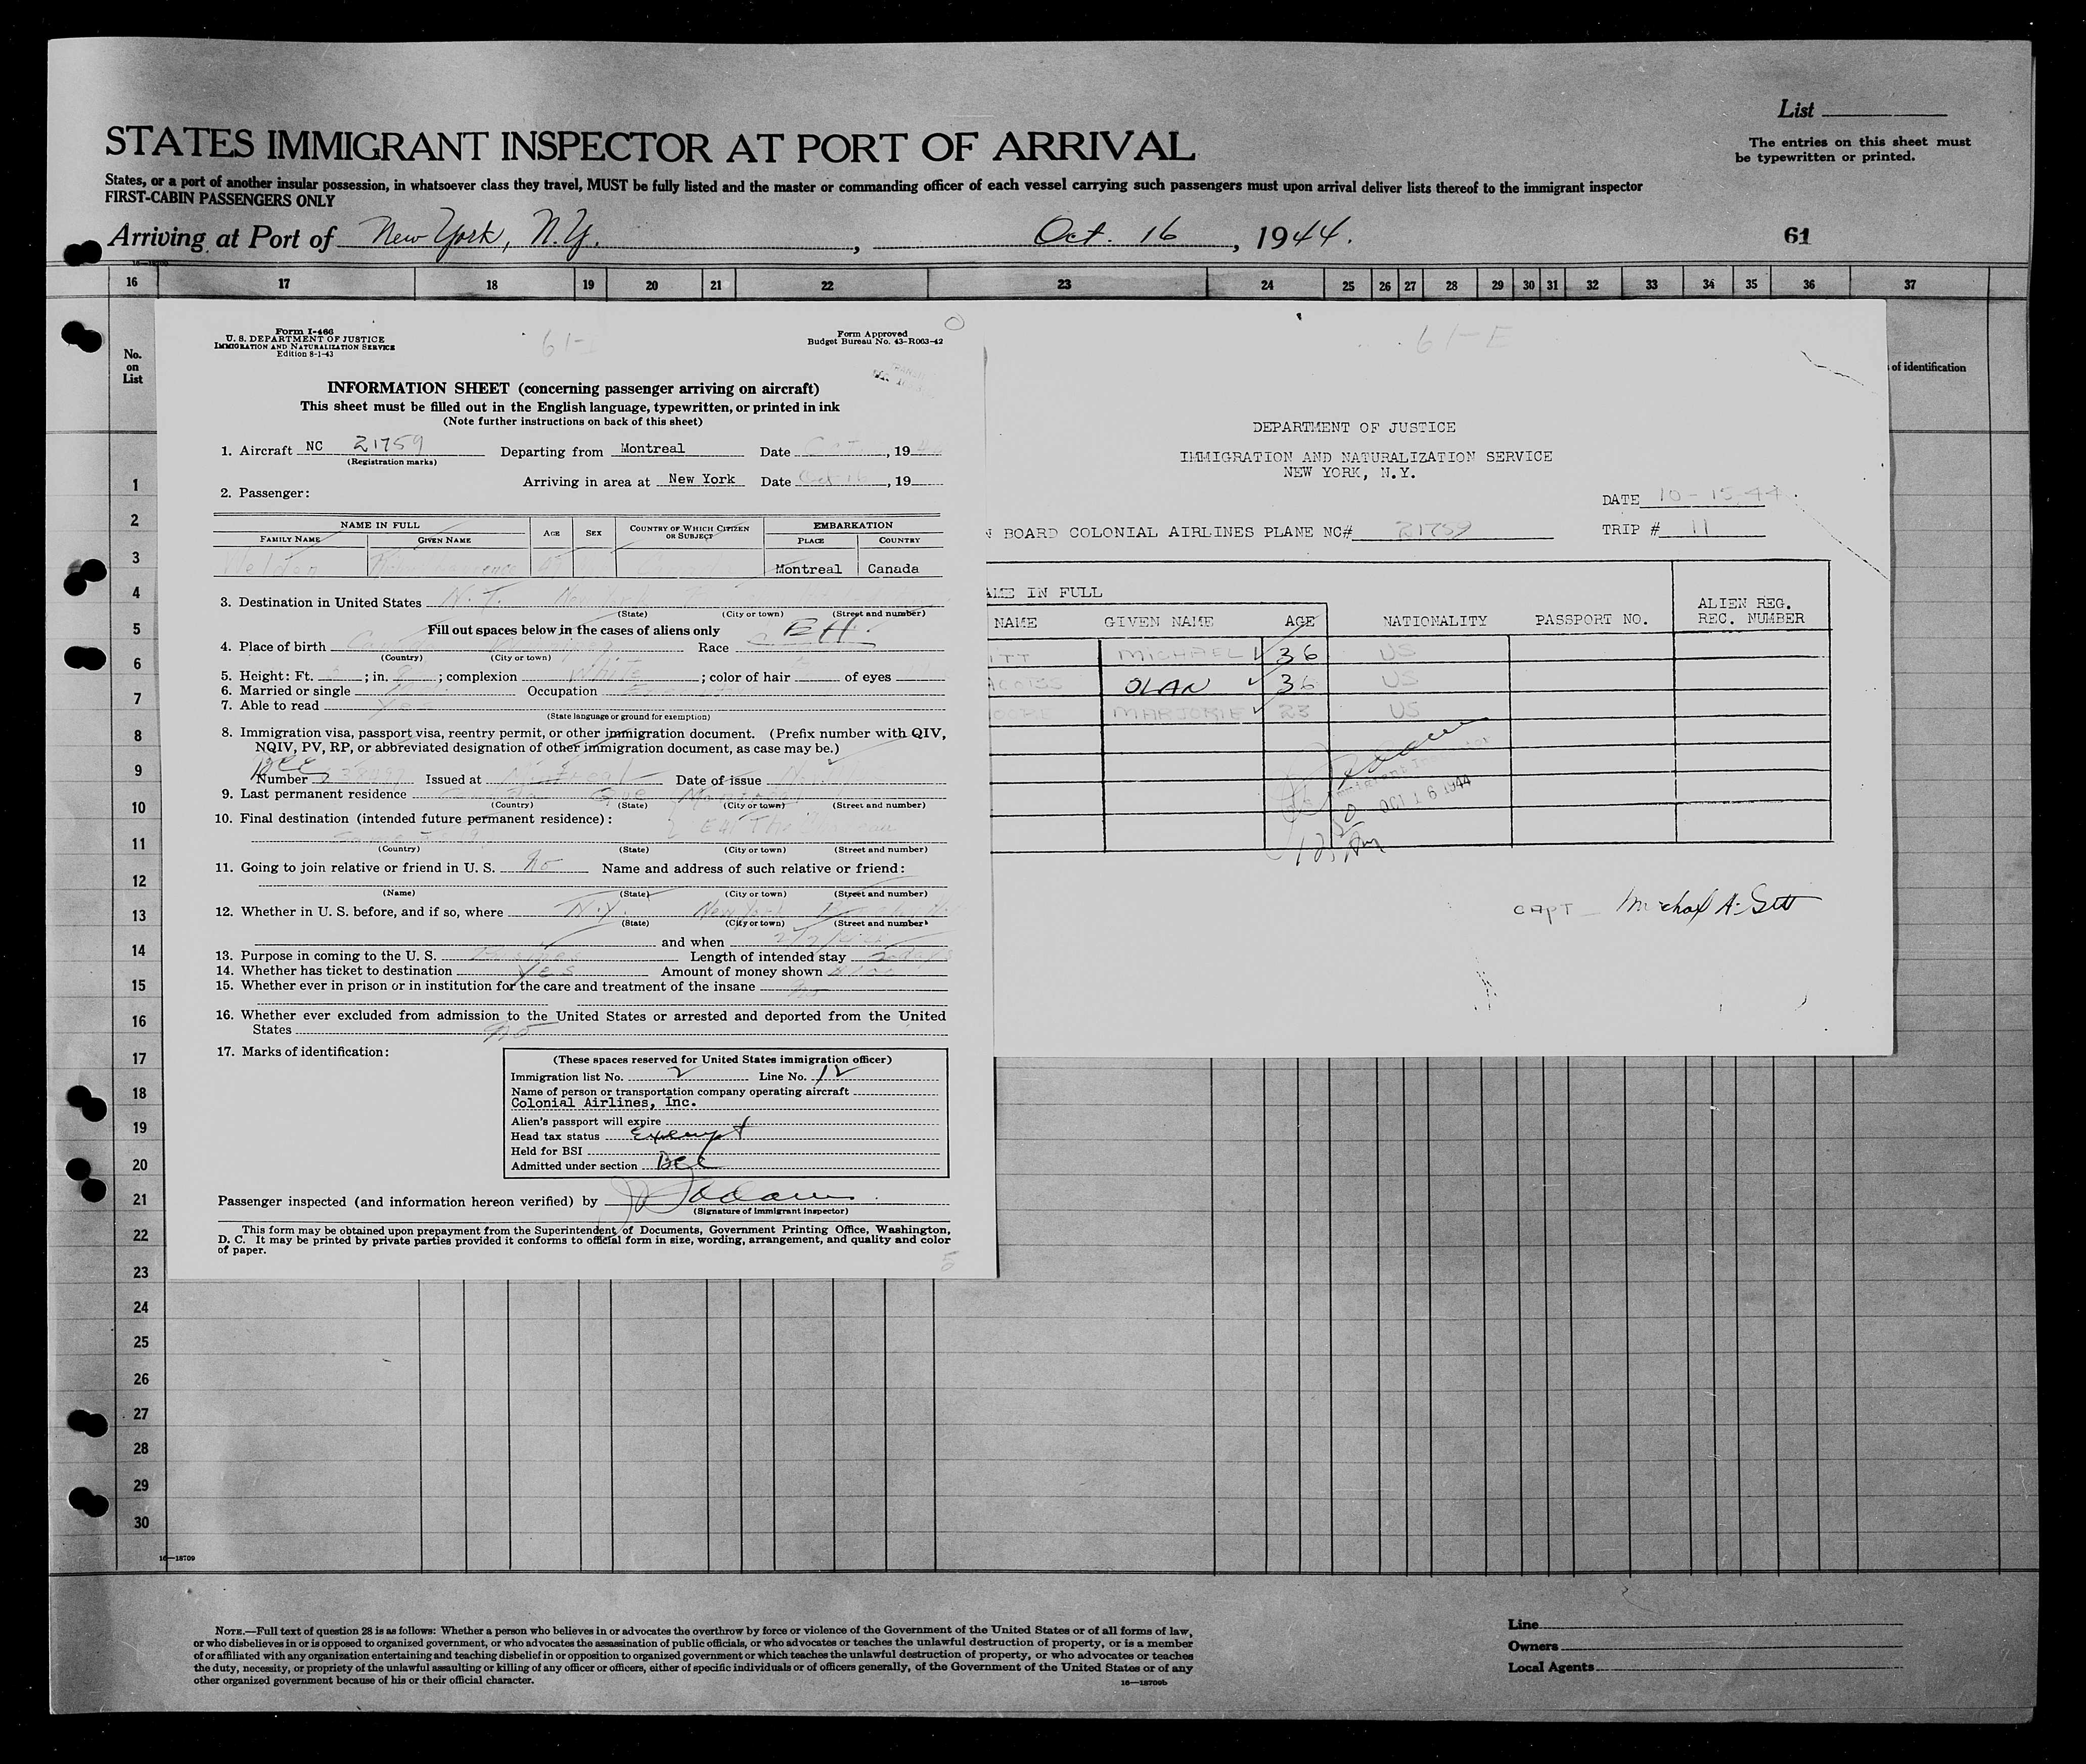 List
STATES IMMIGRANT INSPECTOR AT PORT OF ARRIVAL
The entries on this sheet must
be typewritten or printed.
States, or a port of another insular possession, in whatsoever class they travel, MUST be fully listed and the master or commanding officer of each vessel carrying such passengers must upon arrival deliver lists thereof to the immigrant inspector
FIRST-CABIN PASSENGERS ONLY
Arriving at Port of New York, N.Y., Oct. 16, 1944.
61
16 17 18 19 20 21 22 23 24 25 26 27 28 29 30 31 32 33 34 35 36 37
No.
on
List
of identification
1
2
3
4
5
6
7
8
9
10
11
12
13
14
15
16
17
18
19
20
21
22
23
24
25
26
27
28
29
30
16—18709
Form I-466
U. S. DEPARTMENT OF JUSTICE
IMMIGRATION AND NATURALIZATION SERVICE
Edition 8-1-43
61-
Form Approved
Budget Bureau No. 43-R063-42
INFORMATION SHEET (concerning passenger arriving on aircraft)
This sheet must be filled out in the English language, typewritten, or printed in ink
(Note further instructions on back of this sheet)
1. Aircraft NC 21759 Departing from Montreal Date Oct, 19
(Registration marks)
Arriving in area at New York Date Oct 16, 19
2. Passenger:
NAME IN FULL AGE SEX COUNTRY OF WHICH CITIZEN OR SUBJECT EMBARKATION
FAMILY NAME GIVEN NAME PLACE COUNTRY
Montreal Canada
3. Destination in United States
(State) (City or town) (Street and number)
Fill out spaces below in the cases of aliens only
4. Place of birth Race
(Country) (City or town)
5. Height: Ft. ; in. ; complexion White ; color of hair of eyes
6. Married or single Occupation
7. Able to read Yes
(State language or ground for exemption)
8. Immigration visa, passport visa, reentry permit, or other immigration document. (Prefix number with QIV,
NQIV, PV, RP, or abbreviated designation of other immigration document, as case may be.)
Number Issued at Montreal Date of issue
9. Last permanent residence
(Country) (State) (City or town) (Street and number)
10. Final destination (intended future permanent residence):
(Country) (State) (City or town) (Street and number)
11. Going to join relative or friend in U. S. No Name and address of such relative or friend:
(Name) (State) (City or town) (Street and number)
12. Whether in U. S. before, and if so, where N.Y. New York
(State) (City or town) (Street and number)
and when
13. Purpose in coming to the U. S. Length of intended stay
14. Whether has ticket to destination Yes Amount of money shown
15. Whether ever in prison or in institution for the care and treatment of the insane No
16. Whether ever excluded from admission to the United States or arrested and deported from the United
States No
17. Marks of identification:
(These spaces reserved for United States immigration officer)
Immigration list No. 2 Line No. 12
Name of person or transportation company operating aircraft
Colonial Airlines, Inc.
Alien's passport will expire
Head tax status Exempt
Held for BSI
Admitted under section
Passenger inspected (and information hereon verified) by
(Signature of Immigrant Inspector)
This form may be obtained upon prepayment from the Superintendent of Documents, Government Printing Office, Washington,
D. C. It may be printed by private parties provided it conforms to official form in size, wording, arrangement, and quality and color
of paper.
5
61-E
DEPARTMENT OF JUSTICE
IMMIGRATION AND NATURALIZATION SERVICE
NEW YORK, N.Y.
DATE 10-15-44
BOARD COLONIAL AIRLINES PLANE NC# 21759 TRIP # 11
IN FULL
NAME GIVEN NAME AGE NATIONALITY PASSPORT NO. ALIEN REG. REC. NUMBER
ITT MICHAEL 36 US
OLAN 36 US
MARJORIE 23 US
OCT 16 1944
CAPT
NOTE.—Full text of question 28 is as follows: Whether a person who believes in or advocates the overthrow by force or violence of the Government of the United States or of all forms of law,
or who disbelieves in or is opposed to organized government, or who advocates the assassination of public officials, or who advocates or teaches the unlawful destruction of property, or is a member
of or affiliated with any organization entertaining and teaching disbelief in or opposition to organized government or which teaches the unlawful destruction of property, or who advocates or teaches
the duty, necessity, or propriety of the unlawful assaulting or killing of any officer or officers, either of specific individuals or of officers generally, of the Government of the United States or of any
other organized government because of his or their official character.
16—18709b
Line
Owners
Local Agents